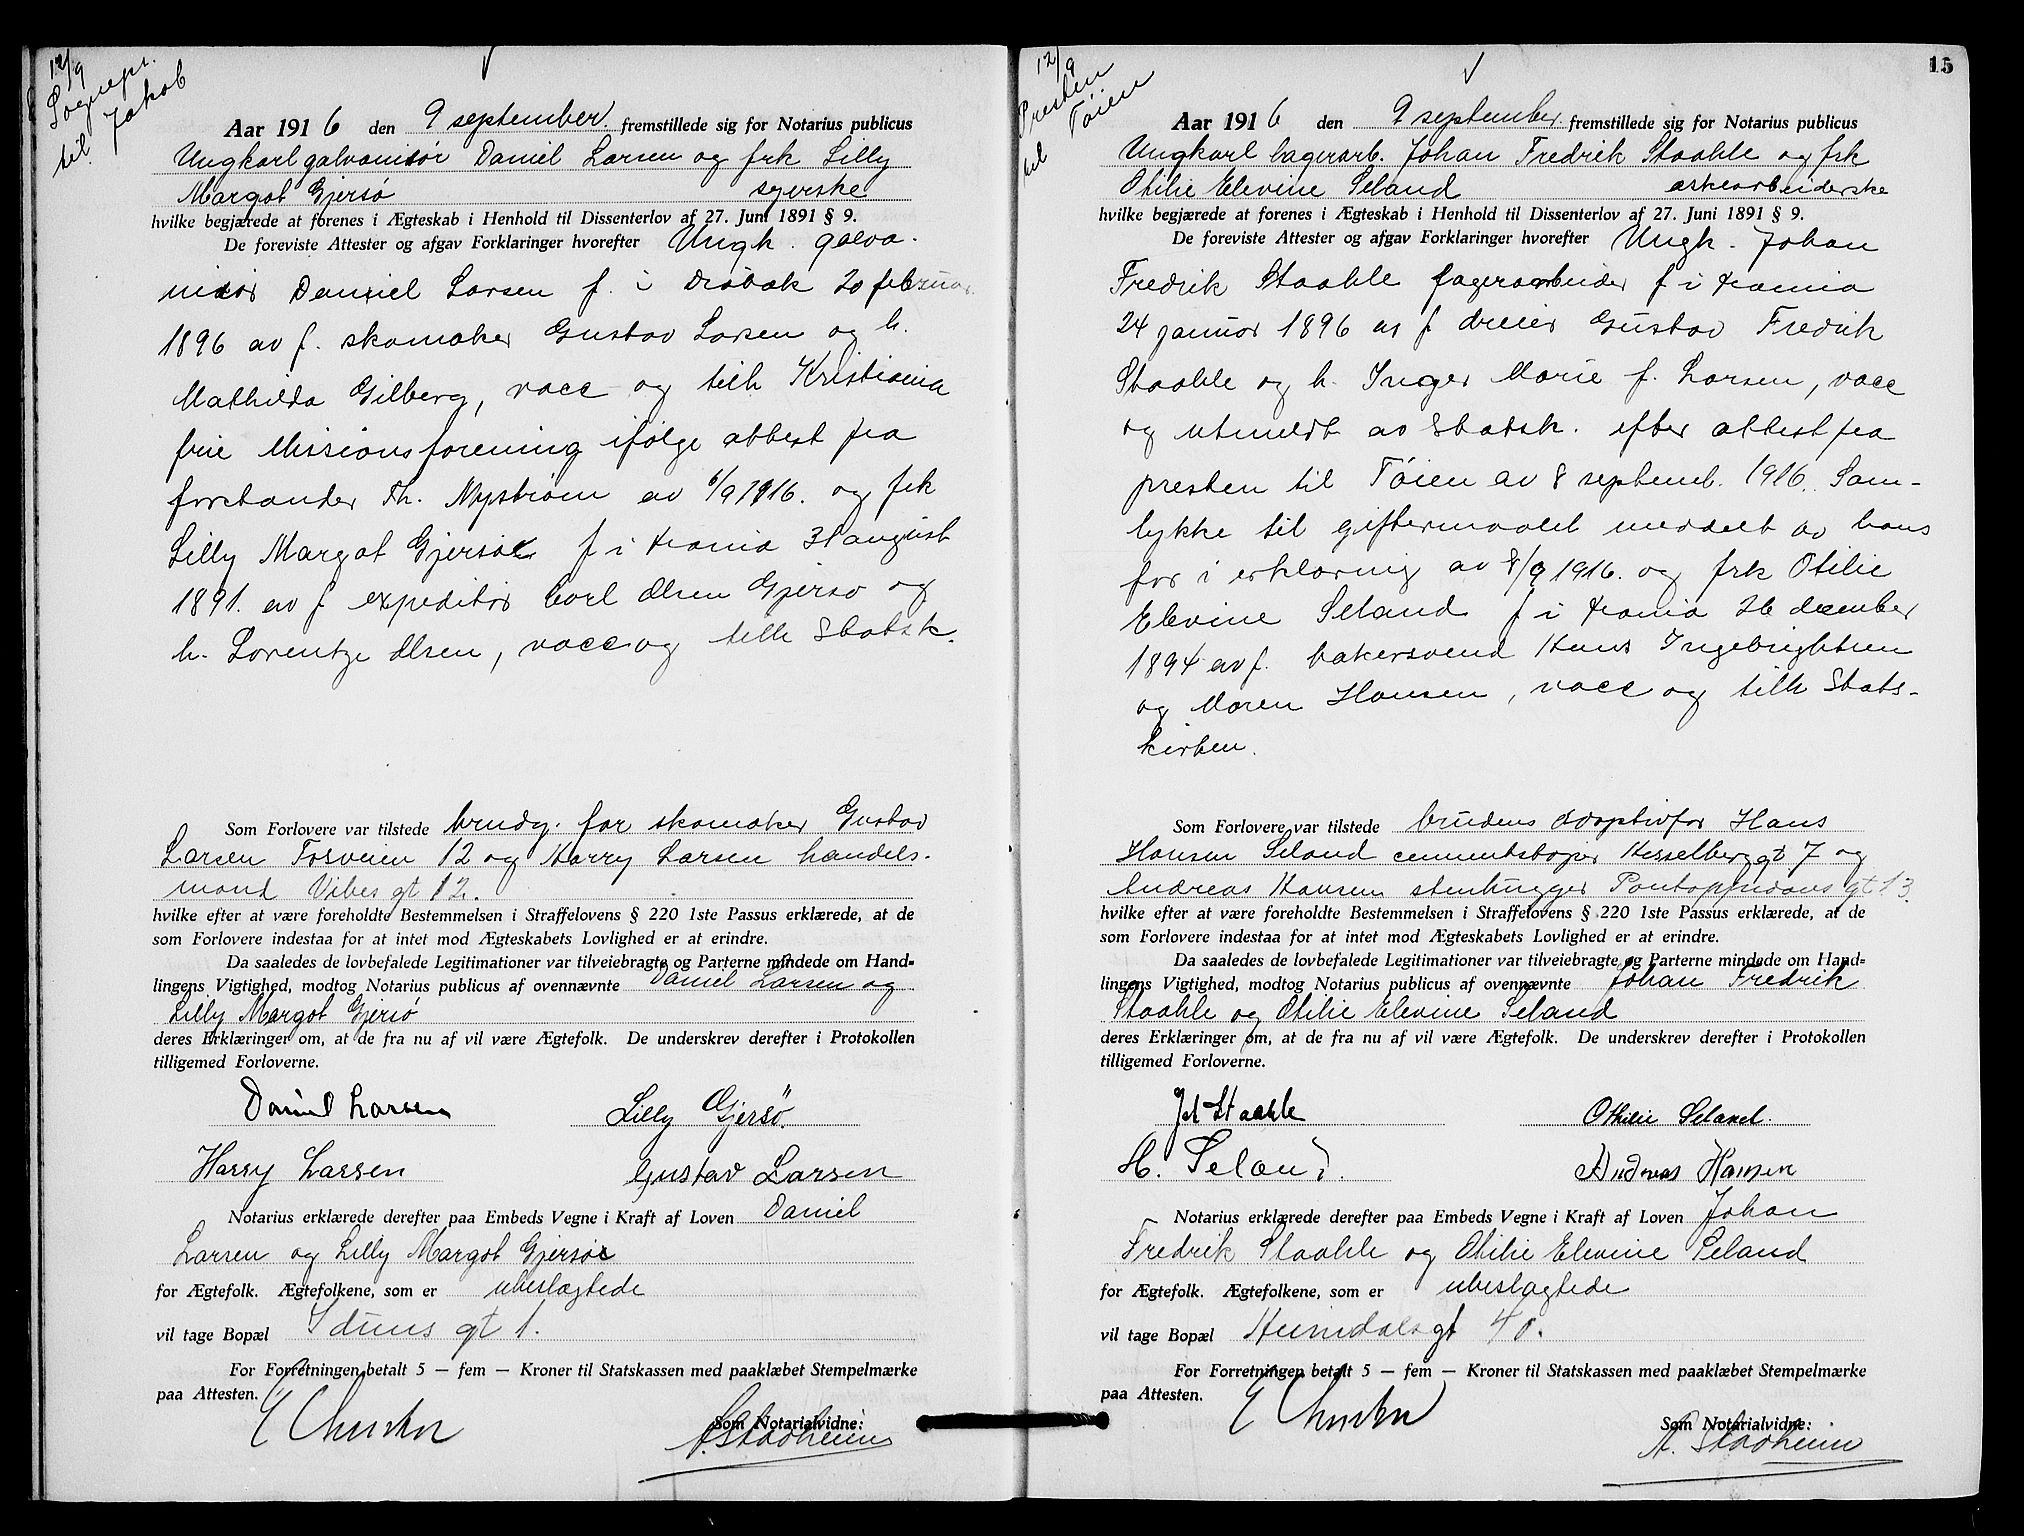 12/9
Sognepr.
til Jakob
Aar 1916 den 9 september fremstillede sig for Notarius publicus
Ungkarl galvanisör Daniel Larsen og frk Lilly
Margot Gjersø syerske
hvilke begjærede at forenes i Ægteskab i Henhold til Dissenterlov af 27. Juni 1891 § 9.
De foreviste Attester og afgav Forklaringer hvorefter Ungk. galva-
nisör Daniel Larsen f. i Dröbak 20 februar
1896 av f. skomaker Gustav Larsen og h.
Mathilda Gilberg, vacc og tilh Kristiania
frie Missionsforening ifölge attest fra
forstander Th. Nyström av 6/9 1916. og frk
Lilly Margot Gjersöe f i Krania 31 august
1891. av f expeditör Carl Olsen Gjersö og
h. Lorentze Olsen, vacc og tilh Statsk.
Som Forlovere var tilstede brudg. far skomaker Gustav
Larsen Torveien 12 og Harry Larsen handels-
mand Vibes gt 12.
hvilke efter at være foreholdte Bestemmelsen i Straffelovens § 220 1ste Passus erklærede, at de
som Forlovere indestaa for at intet mod Ægteskabets Lovlighed er at erindre.
Da saaledes de lovbefalede Legitimationer var tilveiebragte og Parterne mindede om Hand-
lingens Vigtighed, modtog Notarius publicus af ovennævnte Daniel Larsen og
Lilly Margot Gjersø
deres Erklæringer om, at de fra nu af vil være Ægtefolk. De underskrev derefter i Protokollen
tilligemed Forloverne.
Daniel Larsen Lilly Gjersö.
Harry Larsen Gustav Larsen
Notarius erklærede derefter paa Embeds Vegne i Kraft af Loven Daniel
Larsen og Lilly Margot Gjersöe
for Ægtefolk. Ægtefolkene, som er ubeslægtede
vil tage Bopæl Iduns gt 1.
For Forretningen betalt 5 — fem — Kroner til Statskassen med paaklæbet Stempelmærke
paa Attesten.
Som Notarialvidne:
A. Stadheim
15
12/9
Presten
til Töien
Aar 1916 den 9 september fremstillede sig for Notarius publicus
Ungkarl lagerarb. Johan Fredrik Staahle og frk
Otilie Elevine Seland æskearbeiderske
hvilke begjærede at forenes i Ægteskab i Henhold til Dissenterlov af 27. Juni 1891 § 9.
De foreviste Attester og afgav Forklaringer hvorefter Ungk. Johan
Fredrik Staahle lagerarbeider f i Krania
24 januar 1896 av f dreier Gustav Fredrik
Staahle og h. Inger Marie f. Larsen, vacc
og utmeldt av Statsk. efter attest fra
presten til Töien av 8 septemb. 1916. Sam-
tykke til giftermaalet meddelt av hans
far i erklæring av 8/9 1916. og frk Otilie
Elevine Seland f i Krania 26 december
1894 av f. bakersvend Hans Ingebrigtsen
og Maren Hansen, vacc og tilh Stats-
kirken.
Som Forlovere var tilstede brudens adoptivfar Hans
Hansen Seland cementstöper Hesselberg gt 7 og
Andreas Hansen stenhugger Pontoppidans gt 13.
hvilke efter at være foreholdte Bestemmelsen i Straffelovens § 220 1ste Passus erklærede, at de
som Forlovere indestaa for at intet mod Ægteskabets Lovlighed er at erindre.
Da saaledes de lovbefalede Legitimationer var tilveiebragte og Parterne mindede om Hand-
lingens Vigtighed, modtog Notarius publicus af ovennævnte Johan Fredrik
Staahle og Otilie Elevine Seland
deres Erklæringer om, at de fra nu af vil være Ægtefolk. De underskrev derefter i Protokollen
tilligemed Forloverne.
Joh Staahle Othilie Seland.
H. Seland. Andreas Hansen
Notarius erklærede derefter paa Embeds Vegne i Kraft af Loven Johan
Fredrik Staahle og Otilie Elevine Seland
for Ægtefolk. Ægtefolkene, som er ubeslægtede
vil tage Bopæl Heimdalsgt 40.
For Forretningen betalt 5 — fem — Kroner til Statskassen med paaklæbet Stempelmærke
paa Attesten.
Som Notarialvidne:
A. Stadheim